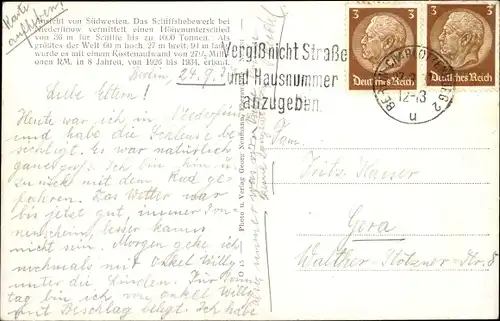 Karte
aufheben!
Ansicht von Südwesten. Das Schiffshebewerk bei
Niederfinow vermittelt einen Höhenunterschied
von 36 m für Schiffe bis zu 1000 Tonnen. Als
größtes der Welt 60 m hoch 27 m breit, 94 m lang
wurde es mit einem Kostenaufwand von 27½ Millionen
RM. in 8 Jahren, von 1926 bis 1934, erbaut.
Berlin, 24.9.
Liebe Eltern!
Heute war ich in Niederfinow
und habe die Schleuse be-
sichtigt. Es war natürlich
ganz groß. Ich bin hin u.
zurück mit dem Rad ge-
fahren. Das Wetter war
bis jetzt gut, immer Son-
nenschein, besser kann's
nicht sein. Morgen gehe ich
nochmals mit Onkel Willy
unter die Linden. Für Sonn-
tag bin ich von Onkel Willy
mit Beschlag belegt. Ich habe
Photo u. Verlag Georg
O 15
Vergiß nicht Straße
und Hausnummer
anzugeben.
3 3
Deutsches Reich Deutsches Reich
BERLIN-CHARLOTTENBURG 2
12-13
u
Fam.
Fritz Kaiser
Gera
Walther-Stötzner-Str. 8